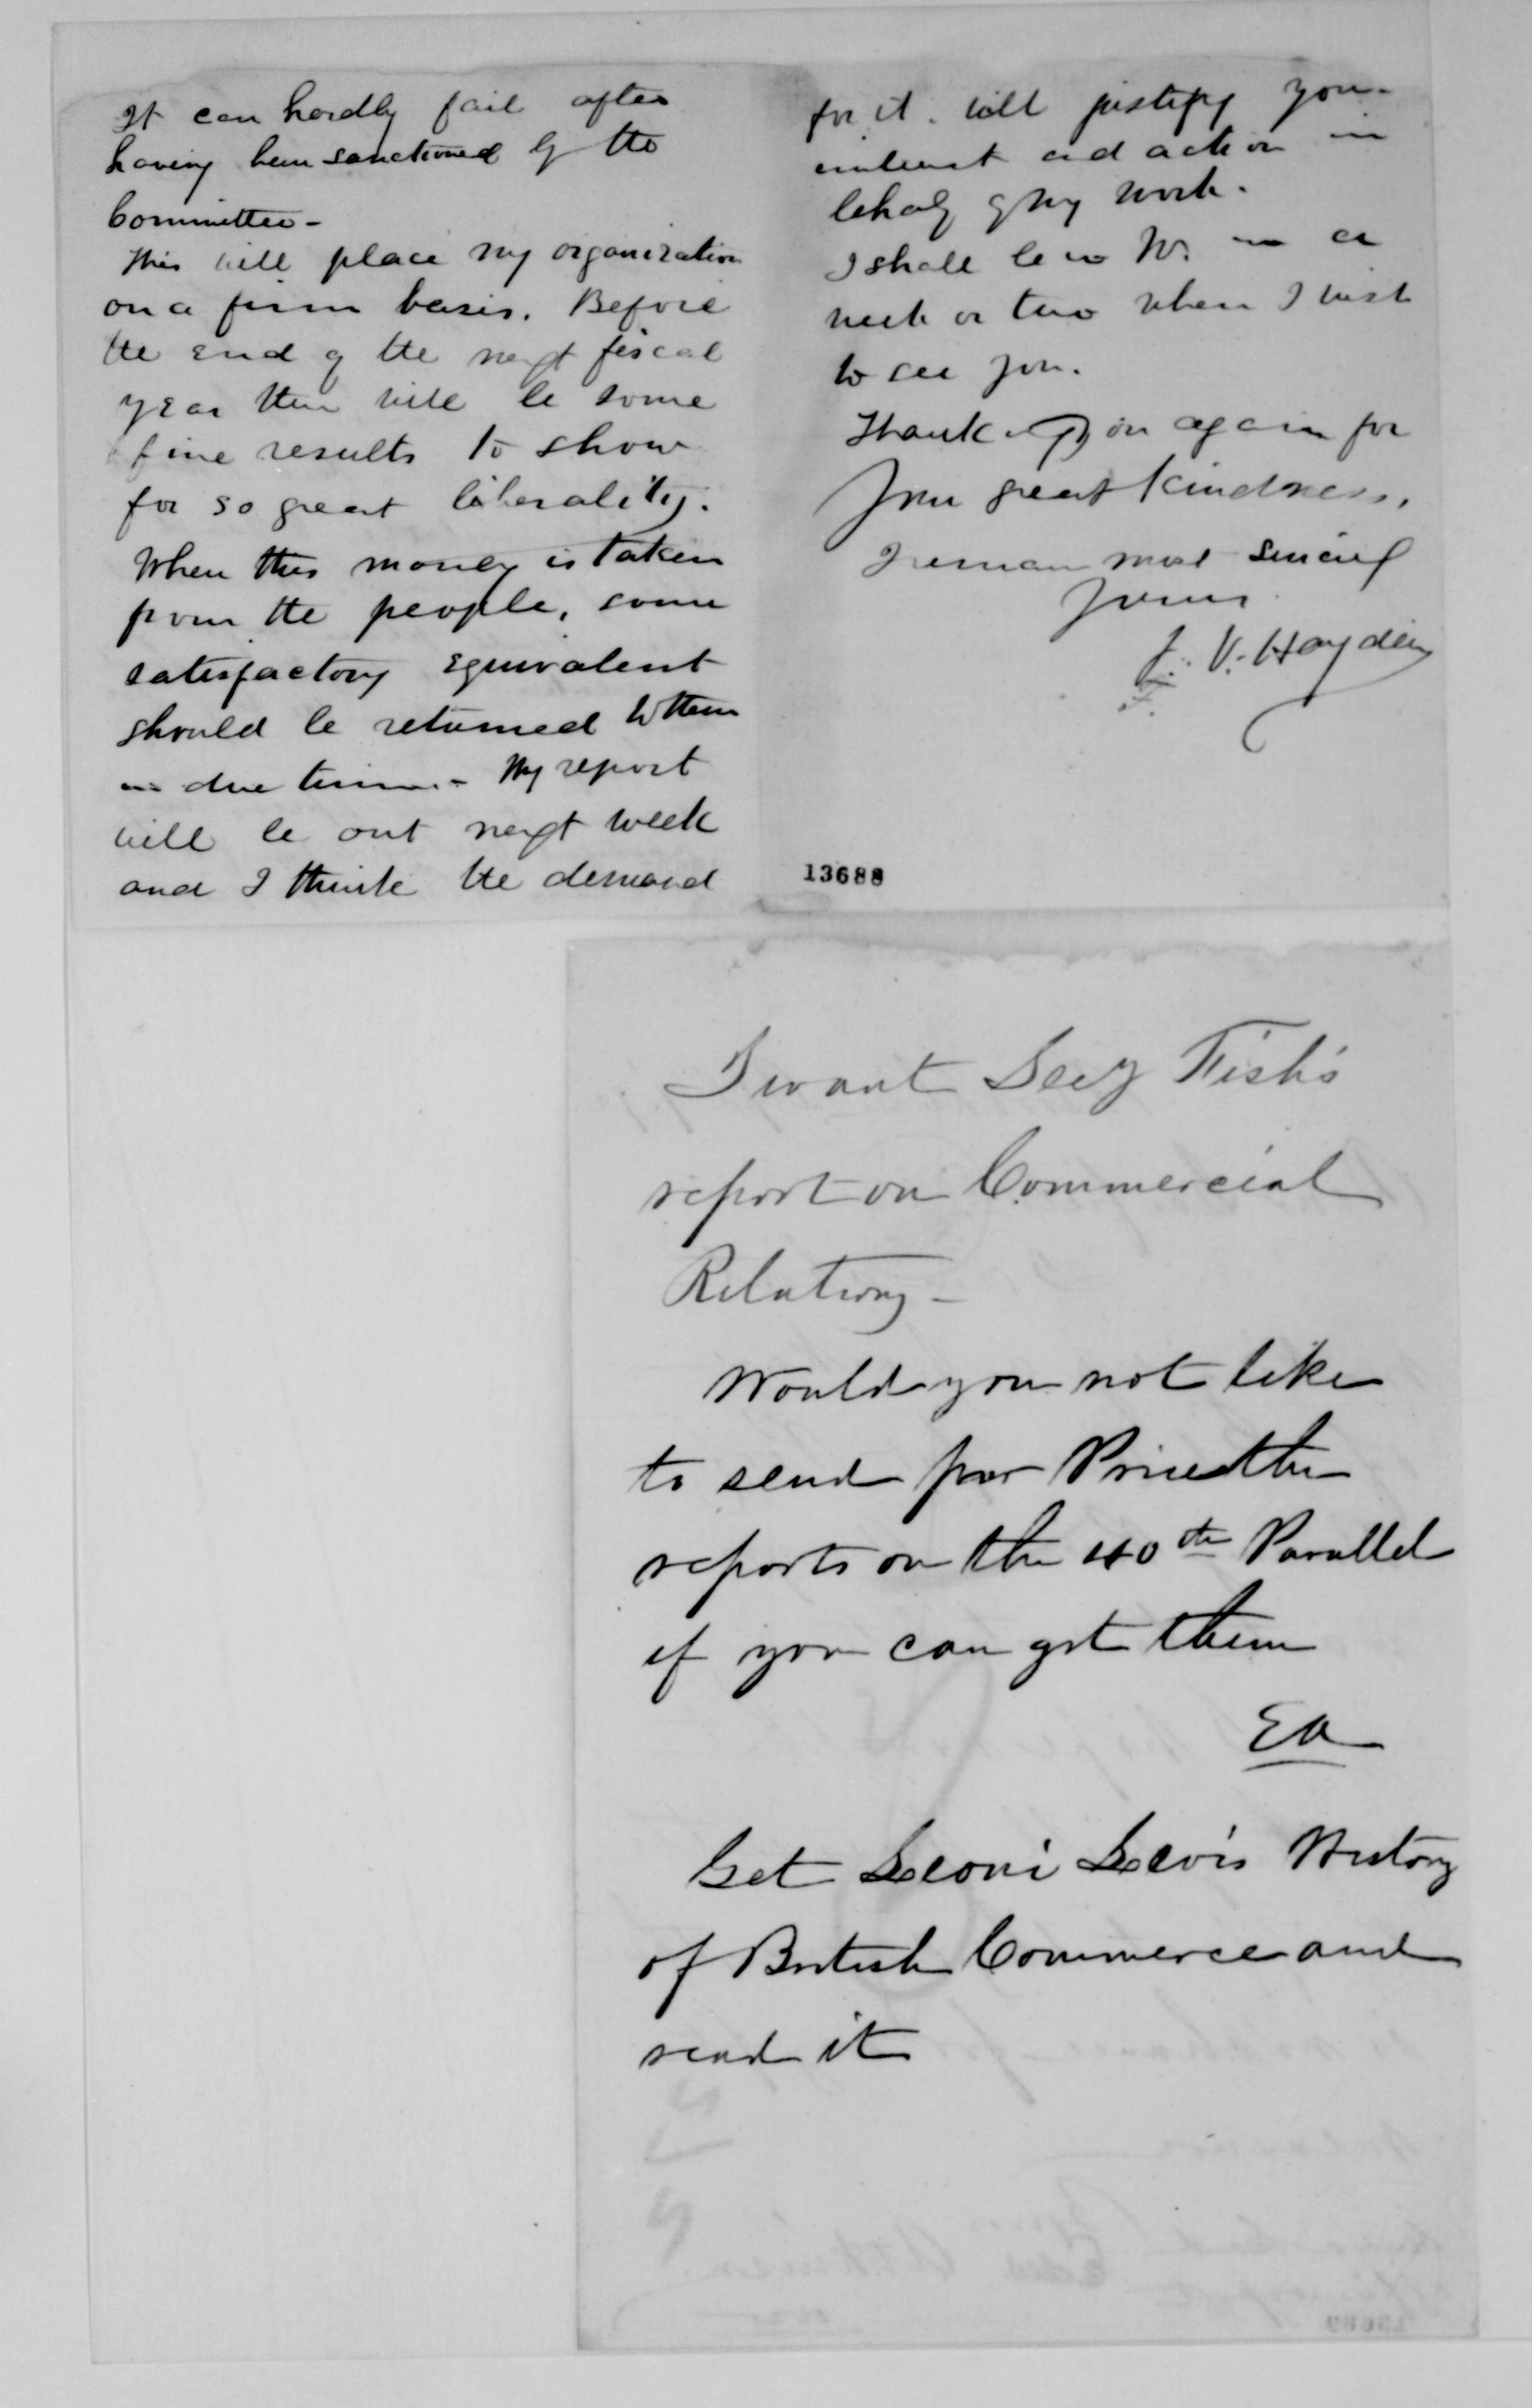 It can hardly fail after
having been sanctioned by the
Committee-
This will place my organization
on a firm basis. Before
the end of the next fiscal
year there will be some
fine results to show
for so great liberality.
When this money is taken
from the people, some
satisfactory equivalent
should be returned to them
in due time. - My report
will be out next week
and I think the demand
for it. will justify your
interest and action in
behalf of my work.
I shall be in W. in a
week or two when I wish
to see you.
Thanking you again for
your great kindness,
I remain most sincerely
yours.
F. V. Hayden
13688
I want Secy Fish's
report on Commercial
Relations -
Would you not like
to send for the
reports on the 40th Parallel
if you can get them
EA
Get Leoni Levi's History
of British Commerce and
read it